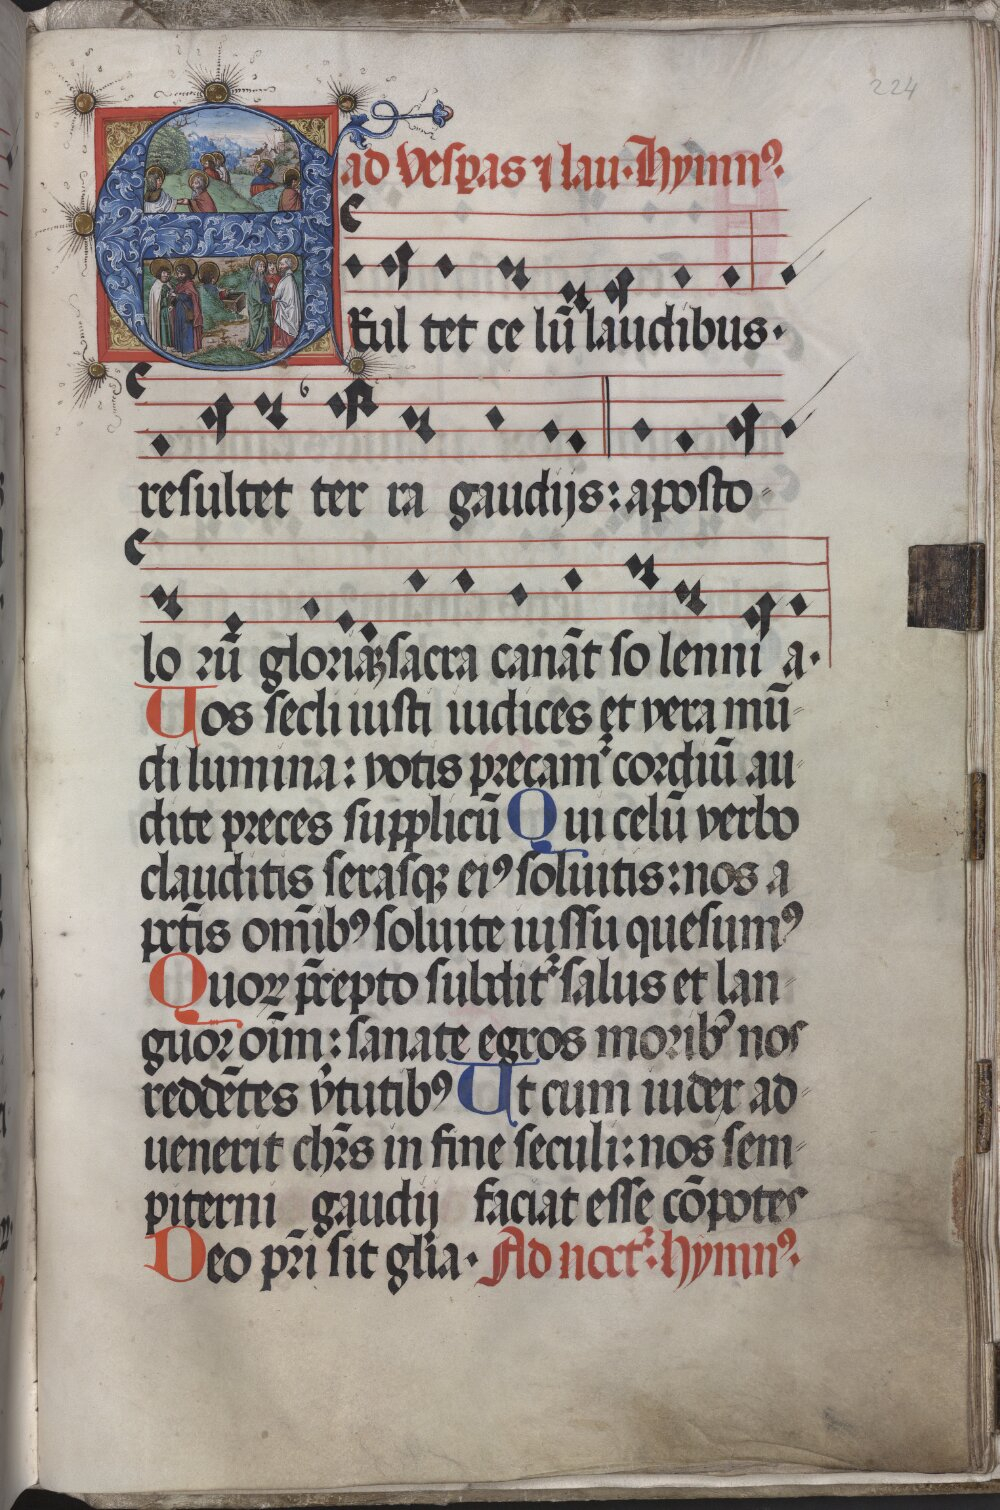 224
ad vesꝑas ⁊ lau· Hymnꝰ·
EXul tet ce lū laudibus·
resultet ter ra gaudijs: aposto-
lo rū gloriāꝫ sacra canāt so lenni a·
Uos secli iusti iudices et vera mū-
di lumina: votis precamᷣ cordiū au-
dite preces supplicū Qui celū verbo
clauditis serasqꝫ eiꝰ soluitis: nos a
pctīs omībꝰ soluite iussu quesumꝰ
Quoꝝ p̄cepto subditᷣ salus et lan-
guor oīm: sanate egros moribꝰ nos
reddētes v̓tutibꝰ Ut cum iudex ad-
uenerit chr̄s in fine seculi: nos sem-
piterni gaudij faciat esse cōpotes
Deo pr̄i sit glīa· Ad noctᷣ· hymnꝰ·